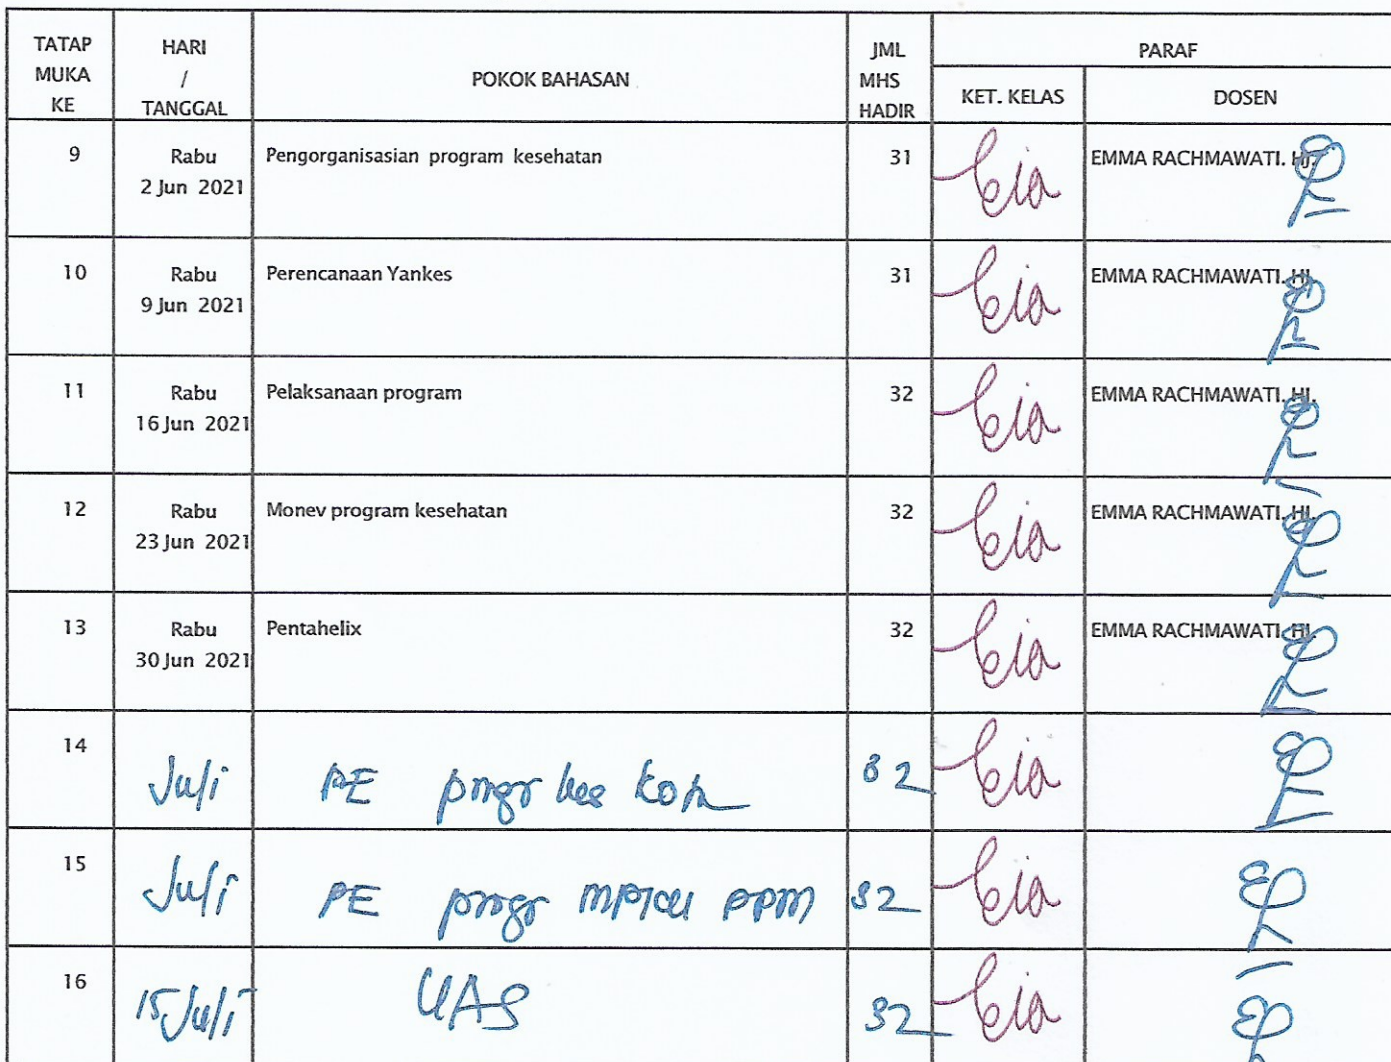 TATAP MUKA KE HARI / TANGGAL POKOK BAHASAN JML MHS HADIR PARAF
KET. KELAS DOSEN
9 Rabu 2 Jun 2021 Pengorganisasian program kesehatan 31 EMMA RACHMAWATI. HJ.
10 Rabu 9 Jun 2021 Perencanaan Yankes 31 EMMA RACHMAWATI. HJ.
11 Rabu 16 Jun 2021 Pelaksanaan program 32 EMMA RACHMAWATI. HJ.
12 Rabu 23 Jun 2021 Monev program kesehatan 32 EMMA RACHMAWATI. HJ.
13 Rabu 30 Jun 2021 Pentahelix 32 EMMA RACHMAWATI. HJ.
14 Juli PE progr kes 32
15 Juli PE progr PPM 32
16 15 Juli UAS 32